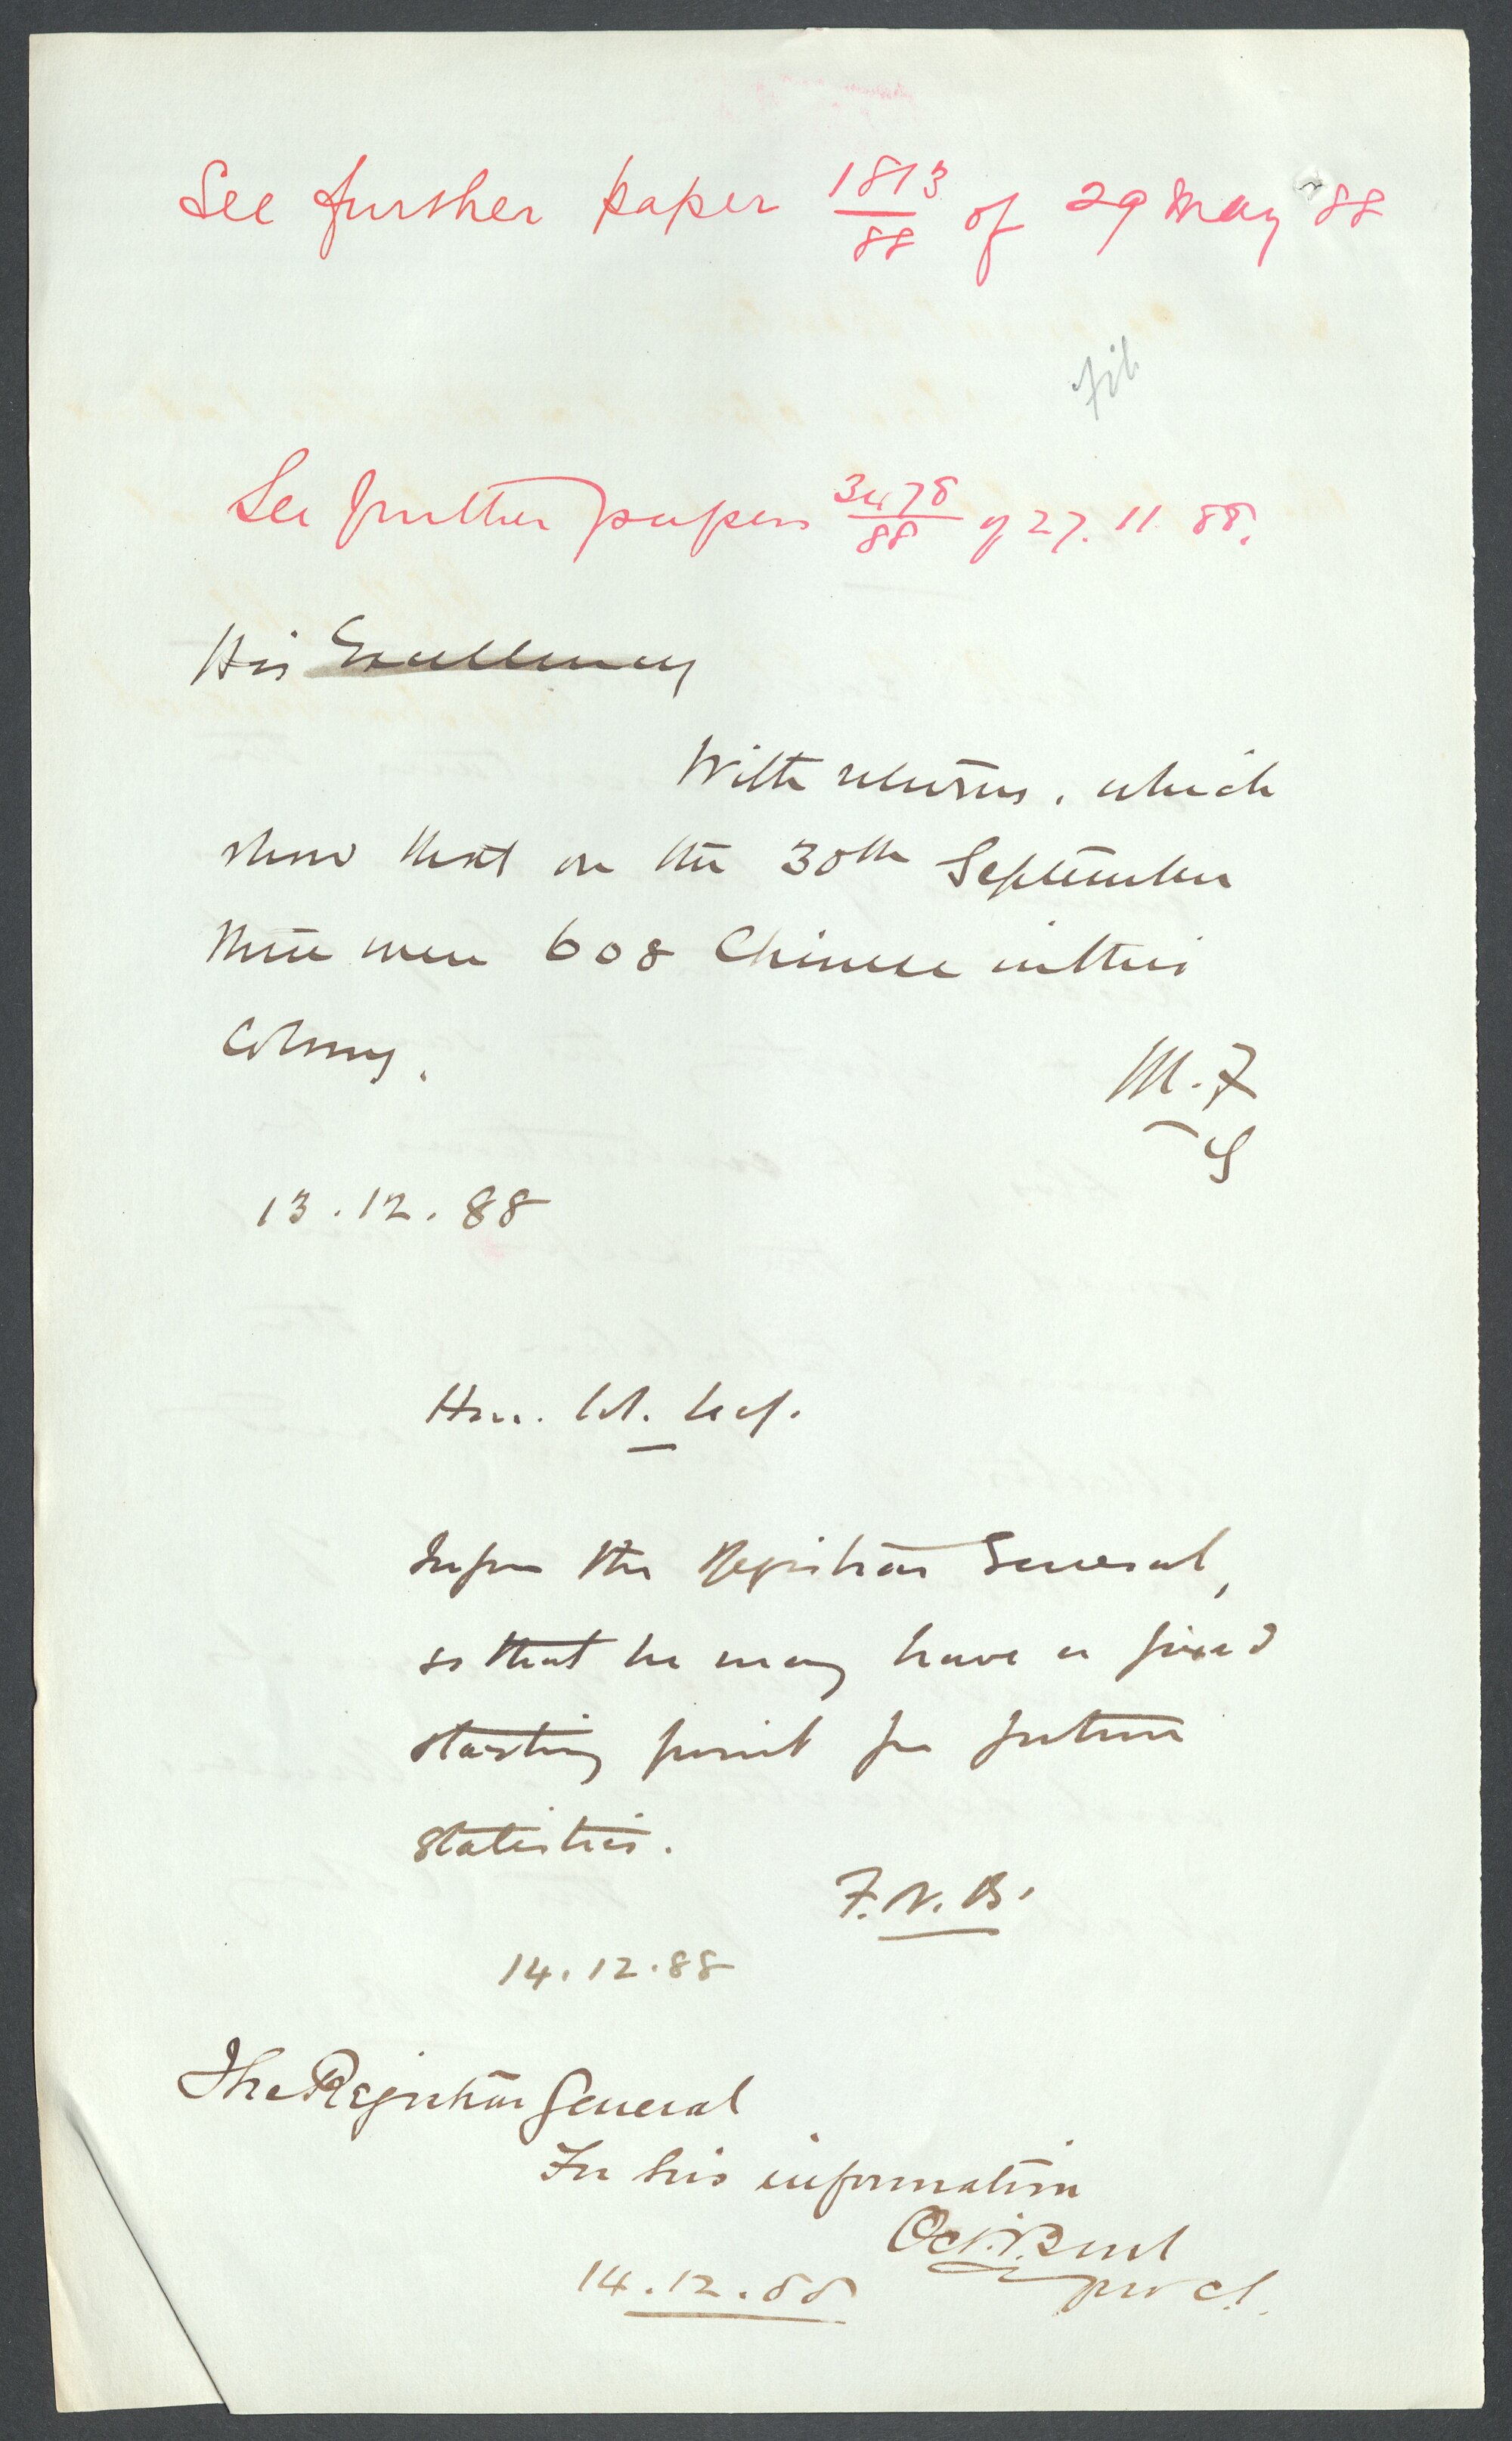 See further paper 1813/88 of 29 May 88
File
See further papers 3478/88 of 27.11.88.
His Excellency
With returns, which
show that on the 30th September
there were 608 Chinese in this
Colony.
M.F
13.12.88
Hon. Col. Sec.
Inform the Registrar General,
so that he may have a fixed
starting point for future
statistics.
F.N.B.
14.12.88
The Registrar General
For his information
Oct. Burt
14.12.88